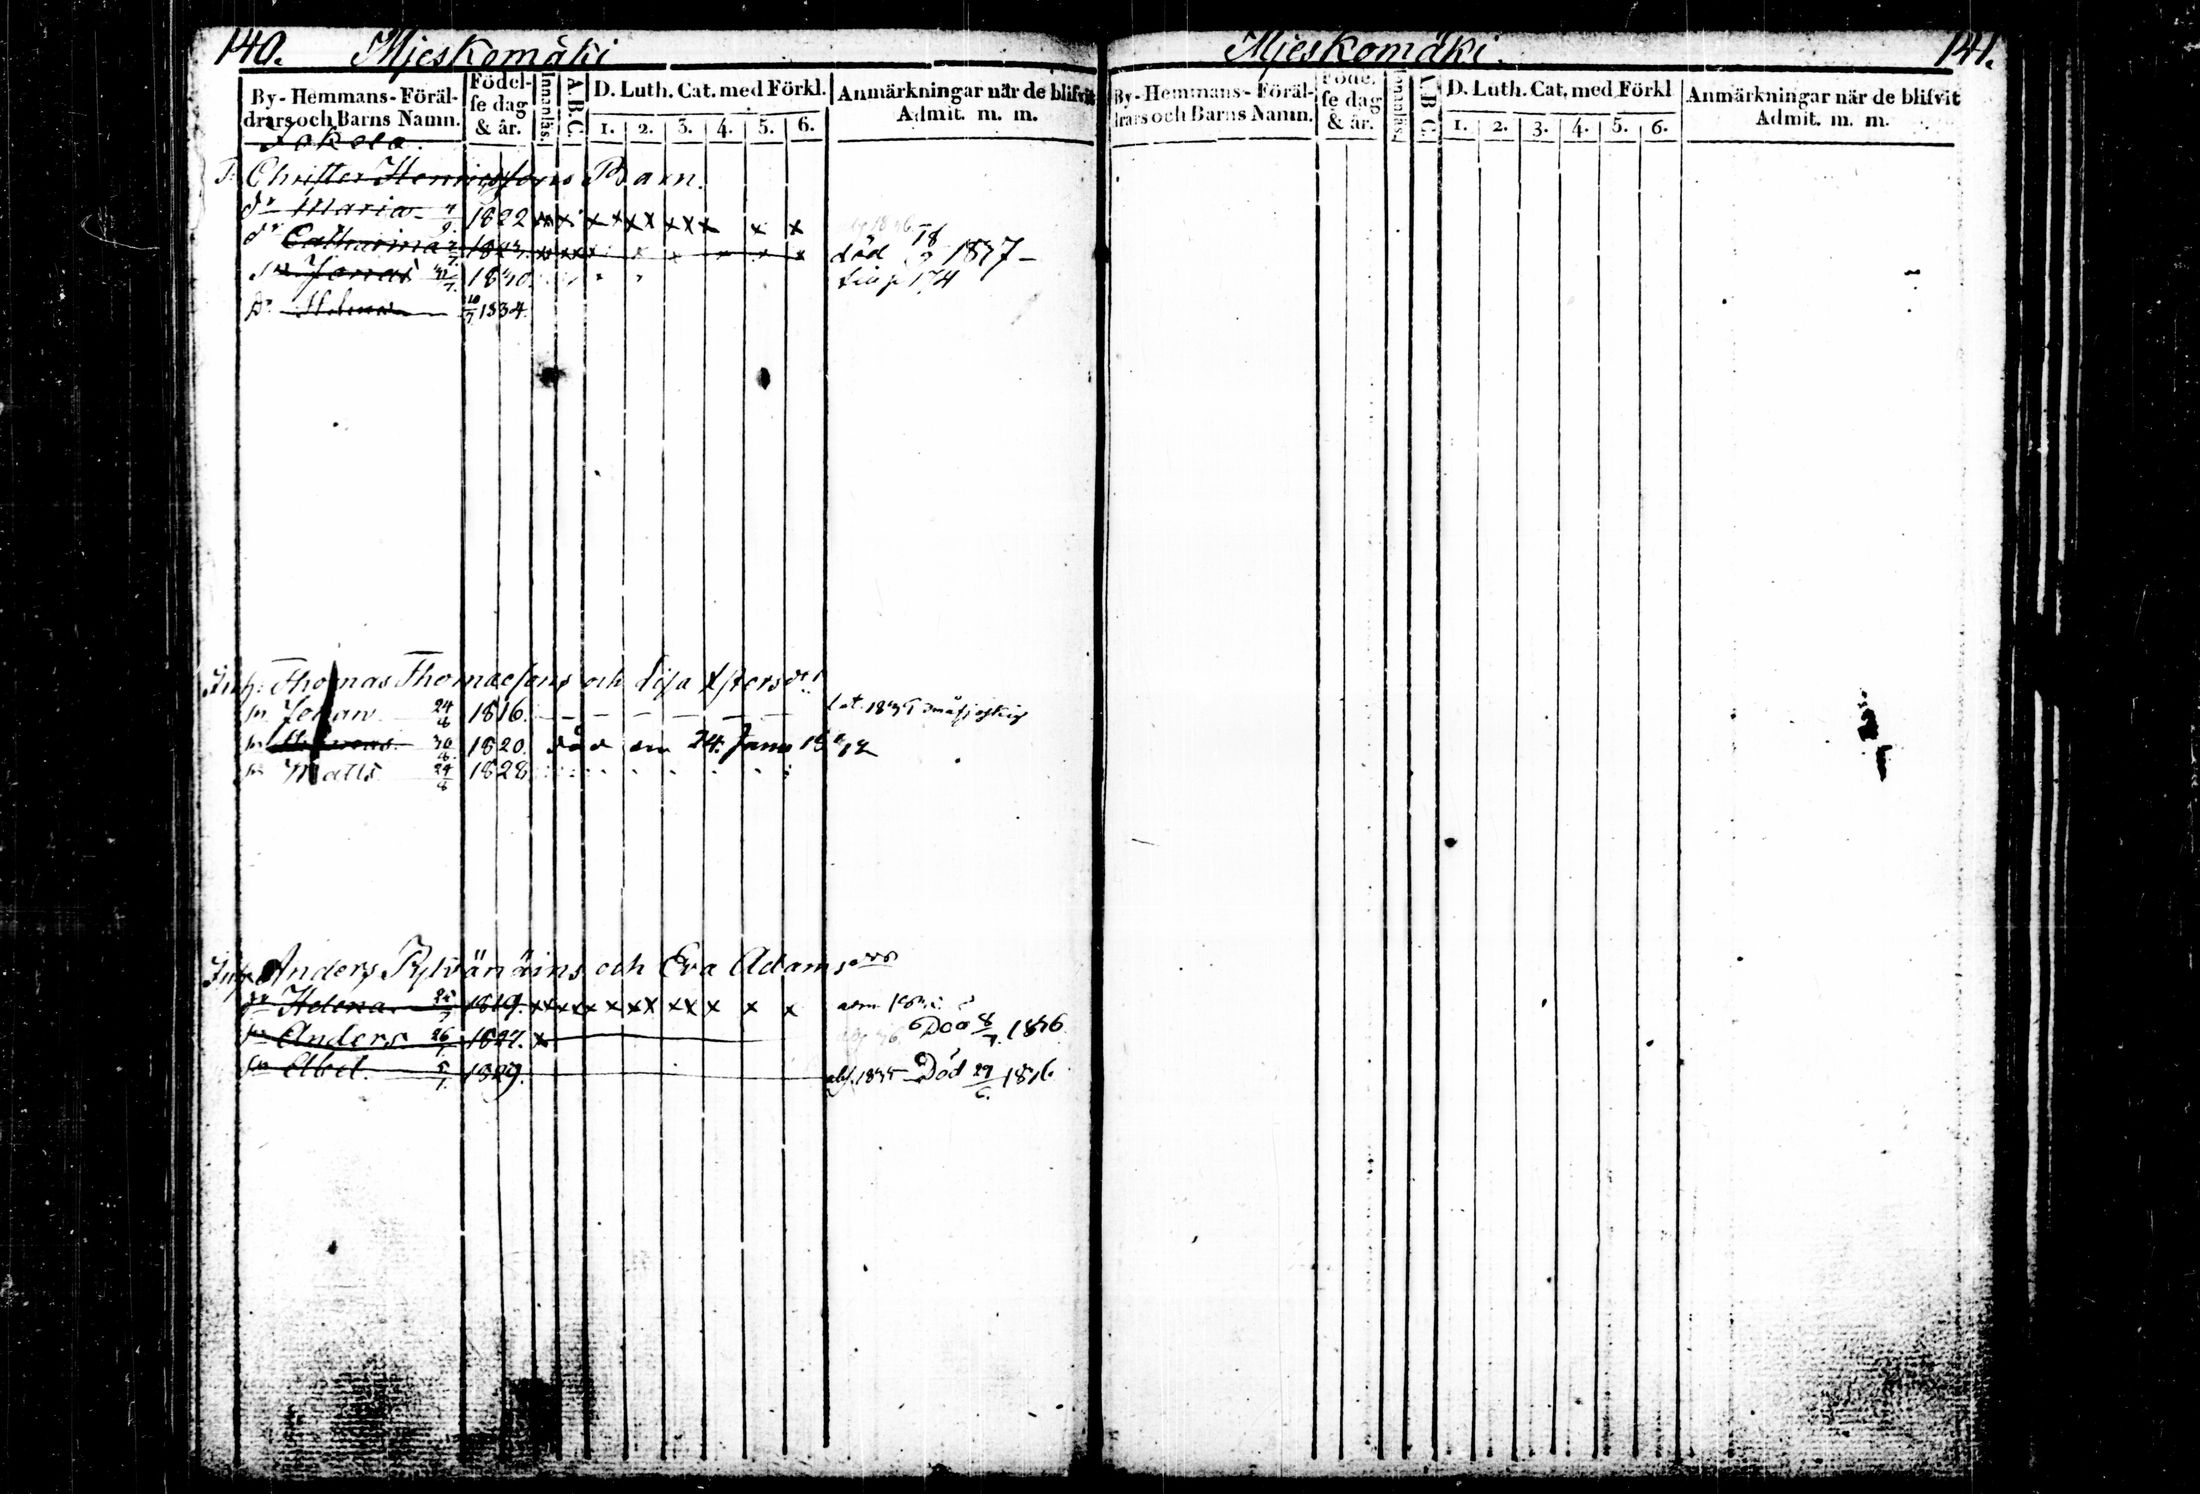 140. Mjeskomäki
By- Hemmans- Föräl-
drars och Barns Namn.
Födel-
se dag
& år.
Innanläs.
A.B.C.
D. Luth. Cat. med Förkl.
1. 2. 3. 4. 5. 6.
Anmärkningar när de blifvit
Admit. m. m.
Jokela.
Christer Henricssons Barn.
dr Maria 1822 x x x x x x x x x x x
dr Catharina 1823. x x x x x x x x x död 18 1837
sn Jonas 1830
dr Helena 10/7 1834.
Inh: Thomas Thomaesons och Lisa
sn Johan 24/8 1816.
sn 30/8 1820. död den 24. Janu
sn Matts 24/8 1828
Inh: Anders Pylvänäins och Eva Adams
dr Helena 1819. x x x x x x x x x x x x x
sn Anders 26 1827. x Död 8/7 1836
sn Abel. 1829. Död 29/6. 1836
Mjeskomäki. 141.
By- Hemmans- Föräl-
drars och Barns Namn.
Födel-
se dag
& år.
Innanläs.
A.B.C.
D. Luth. Cat. med Förkl
1. 2. 3. 4. 5. 6.
Anmärkningar när de blifvit
Admit. m. m.